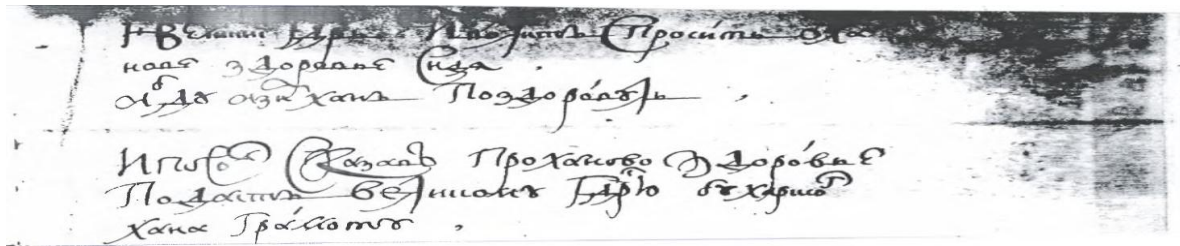 И Великии Гдрь изволитъ спросить о ха
нове здоровье сидя
Абду азиз ханъ поздорову ль
И посол сказавъ про ханово здоровье
подастъ великому Гдрю бухарского
хана грамоту